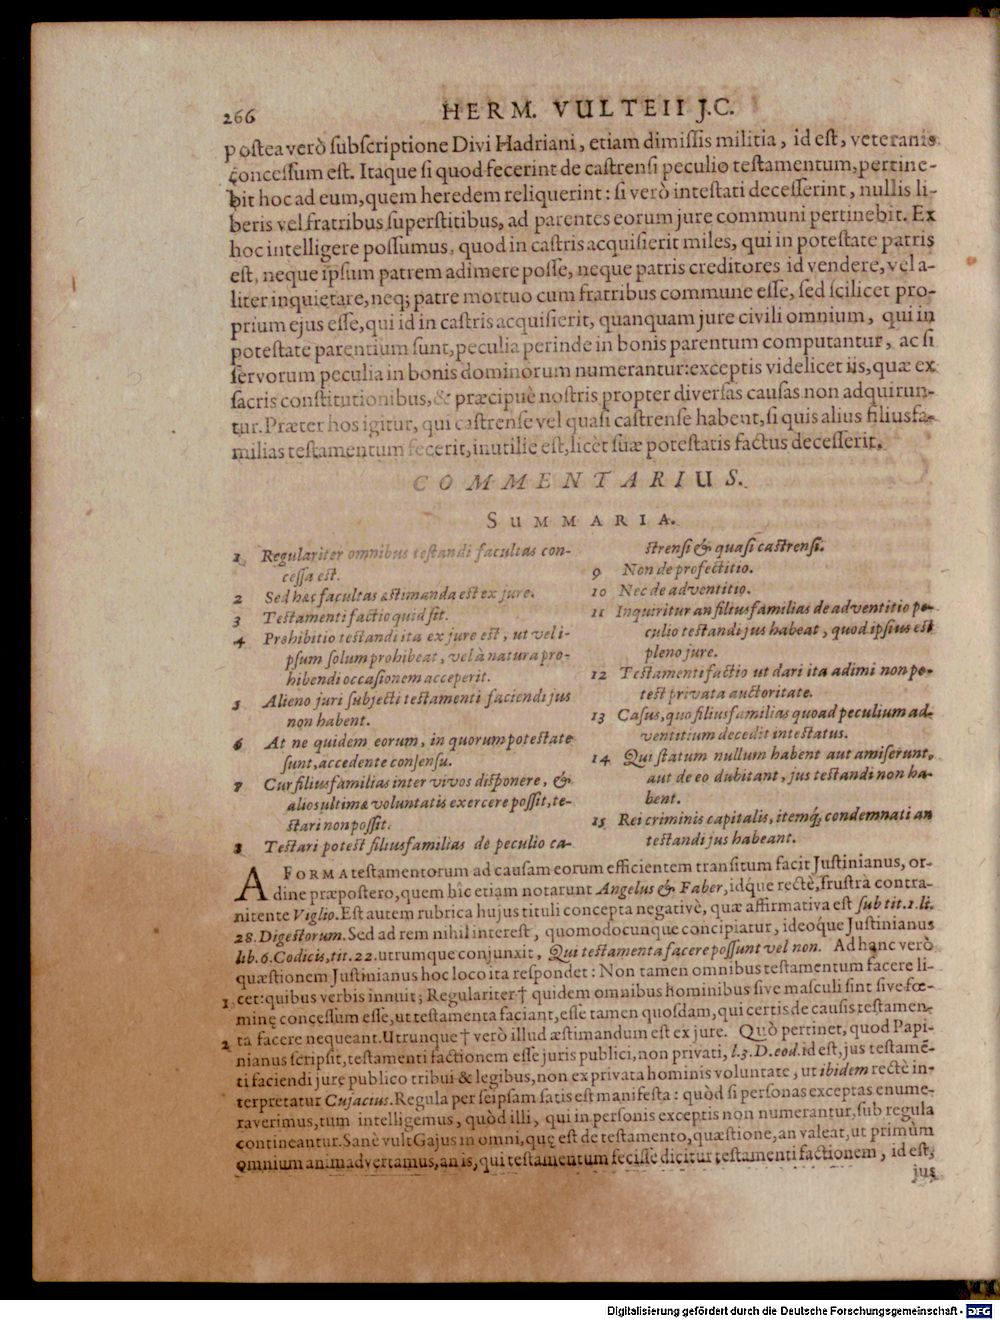 266 HERM. VULTEII J.C.
postea verò subscriptione Divi Hadriani, etiam dimissis militia, id est, veteranis
concessum est. Itaque si quod fecerint de castrensi peculio testamentum, pertine-
bit hoc ad eum, quem heredem reliquerint: si verò intestati decesserint, nullis li-
beris vel fratribus superstitibus, ad parentes eorum jure communi pertinebit. Ex
hoc intelligere possumus, quod in castris acquisierit miles, qui in potestate patris
est, neque ipsum patrem adimere posse, neque patris creditores id vendere, vel a-
liter inquietare, neq; patre mortuo cum fratribus commune esse, sed scilicet pro-
prium ejus esse, qui id in castris acquisierit, quanquam jure civili omnium, qui in
potestate parentium sunt, peculia perinde in bonis parentum computantur, ac si
servorum peculia in bonis dominorum numerantur: exceptis videlicet iis, quæ ex
sacris constitutionibus, & præcipuè nostris propter diversas causas non adquirun-
tur. Præter hos igitur, qui castrense vel quasi castrense habent, si quis alius filiusfa-
milias testamentum fecerit, inutilie est, licèt suæ potestatis factus decesserit.
COMMENTARIUS.
SUMMARIA.
1 Regulariter omnibus testandi facultas con-
cessa est.
2 Sed hæc facultas æstimanda est ex jure.
3 Testamenti factio quid sit.
4 Prohibitio testandi ita ex jure est, ut vel i-
psum solum prohibeat, vel à natura pro-
hibendi occasionem acceperit.
5 Alieno juri subjecti testamenti faciendi jus
non habent.
6 At ne quidem eorum, in quorum potestate
sunt, accedente consensu.
7 Cur filiusfamilias inter vivos disponere, &
alios ultimæ voluntatis exercere possit, te-
stari non possit.
8 Testari potest filiusfamilias de peculio ca-
strensi & quasi castrensi.
9 Non de profectitio.
10 Nec de adventitio.
11 Inquiritur an filiusfamilias de adventitio pe-
culio testandi jus habeat, quod ipsius est
pleno jure.
12 Testamenti factio ut dari ita adimi non po-
test privata auctoritate.
13 Casus, quo filiusfamilias quoad peculium ad-
ventitium decedit intestatus.
14 Qui statum nullum habent aut amiserunt,
aut de eo dubitant, jus testandi non ha-
bent.
15 Rei criminis capitalis, itemq́; condemnati an
testandi jus habeant.
A FORMA testamentorum ad causam eorum efficientem transitum facit Justinianus, or-
dine præpostero, quem hîc etiam notarunt Angelus & Faber, idque rectè, frustrà contra-
nitente Viglio. Est autem rubrica hujus tituli concepta negativè, quæ affirmativa est sub tit. 1. li.
28. Digestorum. Sed ad rem nihil interest, quomodocunque concipiatur, ideoq́ue Justinianus
lib. 6. Codicis, tit. 22. utrumque conjunxit, Qui testamenta facere possunt vel non. Ad hanc verò
quæstionem Justinianus hoc loco ita respondet: Non tamen omnibus testamentum facere li-
1. cet: quibus verbis innuit; Regulariter † quidem omnibus hominibus sive masculi sint sive fœ-
minę concessum esse, ut testamenta faciant, esse tamen quosdam, qui certis de causis testamen-
2 ta facere nequeant. Utrunque † verò illud æstimandum est ex jure. Quò pertinet, quod Papi-
nianus scripsit, testamenti factionem esse juris publici, non privati, l. 3. D. eod. id est, jus testamē-
ti faciendi jure publico tribui & legibus, non ex privata hominis voluntate, ut ibidem rectè in-
terpretatur Cujacius. Regula per seipsam satis est manifesta: quòd si personas exceptas enume-
raverimus, tum intelligemus, quòd illi, qui in personis exceptis non numerantur, sub regula
contineantur. Sanè vult Gajus in omni, quę est de testamento, quæstione, an valeat, ut primùm
omnium animadvertamus, an is, qui testamentum fecisse dicitur testamenti factionem, id est,
jus
Digitalisierung gefördert durch die Deutsche Forschungsgemeinschaft - DFG